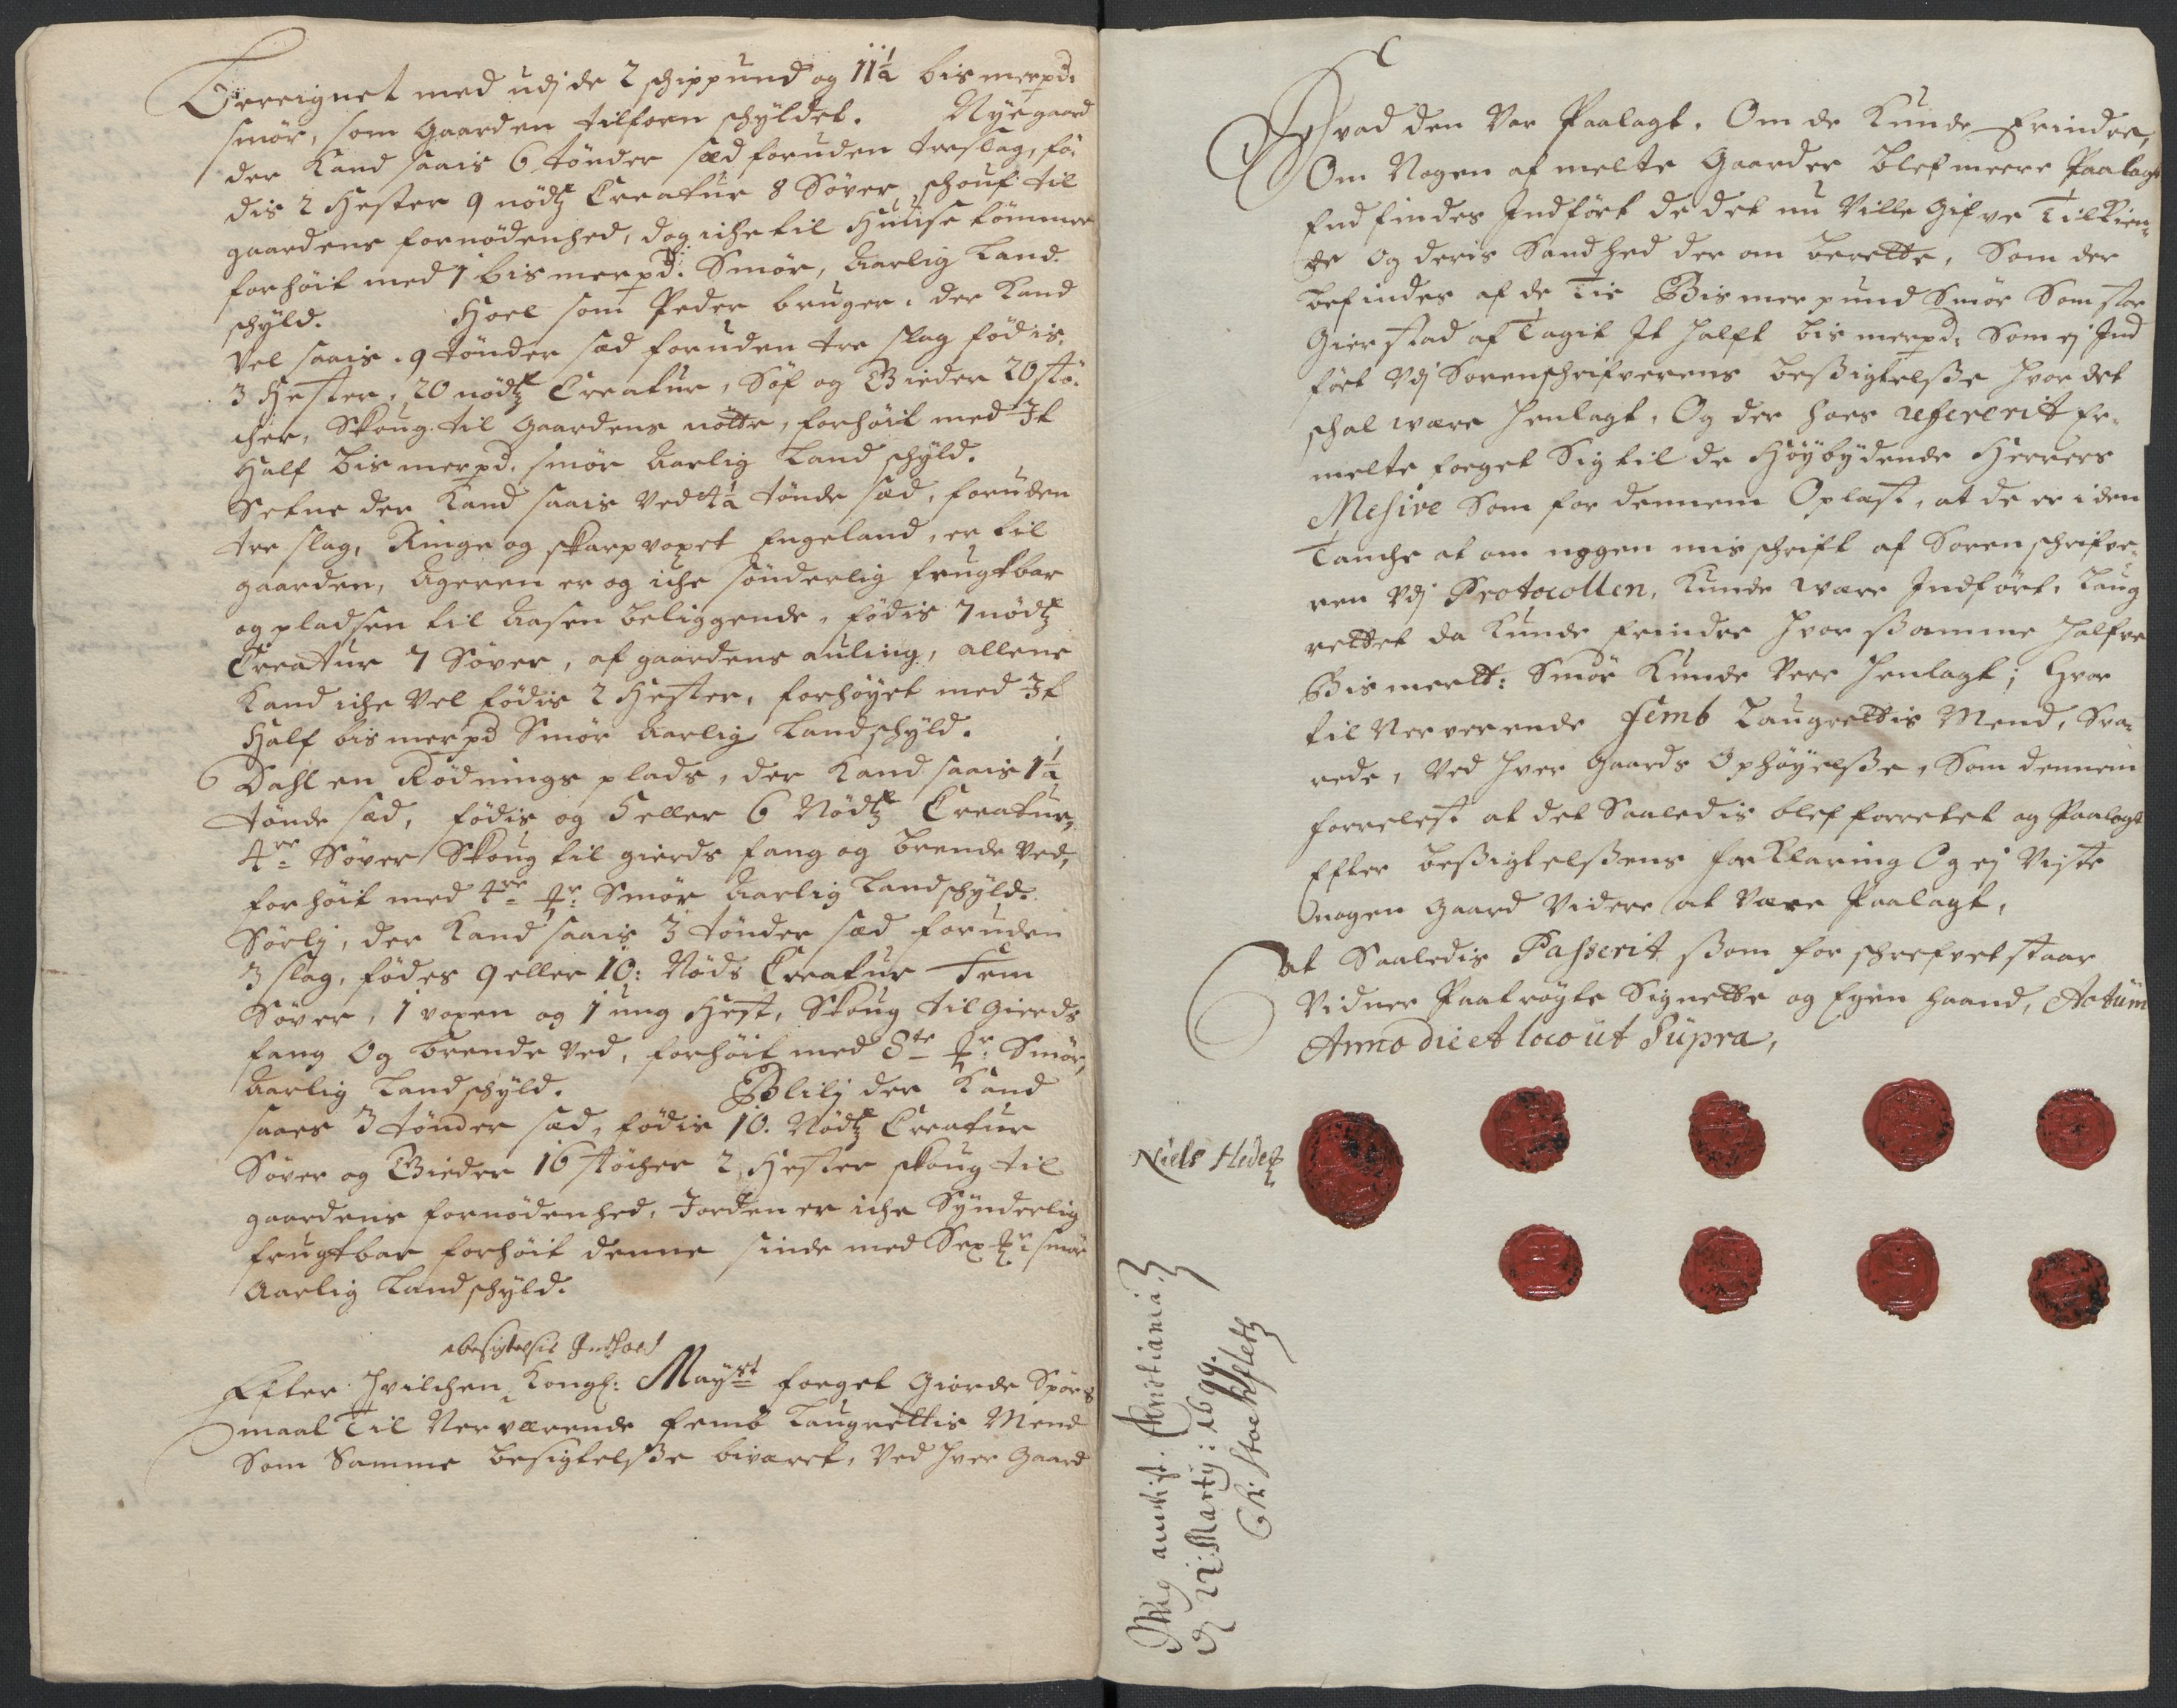 Bereignet med udj de 2 schippund og 11½ bismerpd:
smør, som gaarden tilforn schyldet. Nÿegaard
der kand saais 6 tønder sæd foruden treslag, fø¬
dis 2 hester 9 nødtz Creatur 8 Søver, schouf til
gaardens fornødenhed, dog iche til huuse tømmer
forhøit med 1 bismerpd: Smør, Aarlig Land¬
schÿld. Hoel som Peder bruger, der kand
vel saais 9 tønder sæd foruden tre slag fødis
3 hester, 20 nødtz Creatur, Søf og Gieder 20 stø¬
cher, Skoug til Gaardens nøtte, forhøit med It
Half bismerpd. smør Aarlig Land schÿld.
Setne der kand saais ved 4½ tønde sæd, foruden
tre slag, Ringe og skarpvoxet Engeland, er til
gaarden, Ageren er og iche sønderlig frugtbar
og pladsen til Aasen beliggende, fødis 7 nødtz
Creatur 7 Søver, af gaardens auling, allene
kand iche vel fødis 2 hester, forhøyet med It
Half bismerpd Smør Aarlig Landschÿld.
Dahl en Rødnings plads, der kand saais 1½
tønde sæd, fødis og 5 eller 6 Nødtz Creatur,
4re Søver Skoug til gierds fang og brende ved,
forhøit med 4re mkr: Smør Aarlig Landschÿld.
Sørlj, der kand saais 3 tønder sæd foruden
3 slag, fødes 9 eller 10: Nøds Creatur Fem
Søver, 1 voxen og 1 ung Hest, Skoug til Gierds
fang og brende ved, forhøit med 8te mkr: Smør,
Aarlig Landschÿld. Blilj der kand
saaes 3 tønder sæd, fødis 10. Nødtz Creatur
Søver og Gieder 16 støcher 2 Hester skoug til
gaardens fornødenhed, Jorden er iche Sÿnderlig
frugtbar forhøit denne sinde med Sex mkr: smør
Aarlig Landschÿld.
besigtelsis Indhold
Efter hvilchen Kongl: Mayst foeget giorde Spørs
maal Til Nerværende femb Laugrettis Mend
Som Samme besigtelsße biværet, ved hver Gaard
Hvad den var Paalagt, Om de kunde Erindre,
Om Nogen af melte Gaarder blef meere Paalagt
End findes Indført de det nu ville gifve Tilkien¬
de og deris Sandhed der om berette, Som der
befindes af de Tie Bismerpund Smør Som for
Gierstad af Tagit It halft bismerpd: Som ej Ind
ført vdj Sorenschrifverens beßigtelsße hvor det
schal være henlagt, Og der hoes refererit Er¬
melte foeget Sig til de Høÿbÿdende Herrers
Mesive Som for dennem Oplæst, at de er i den
Tanche at om nogen misschrift af Sorenschrifve¬
ren vdj Protocollen, kunde være Indført, Laug
rettet da kunde Erindre hvor ßamme halfve
Bismer℔: Smør kunde vere henlagt; Hvor
til Nerverende femb Laugrettis Mend, Sva¬
rede, ved hver Gaards Ophøÿelsße, Som dennem
forrelest at det Saaledis blef forrettet og Paalagt
Efter beßigtelsßens forklaring Og ej viste
nogen Gaard videre at være Paalagt,
At Saaledis Passerit ßom for schrefvet staar
Vidner Paatrøgte Signetter og Egen haand, Actum
Anno die et loco ut Supra,
Niels Hede
Chr: Stockfleth